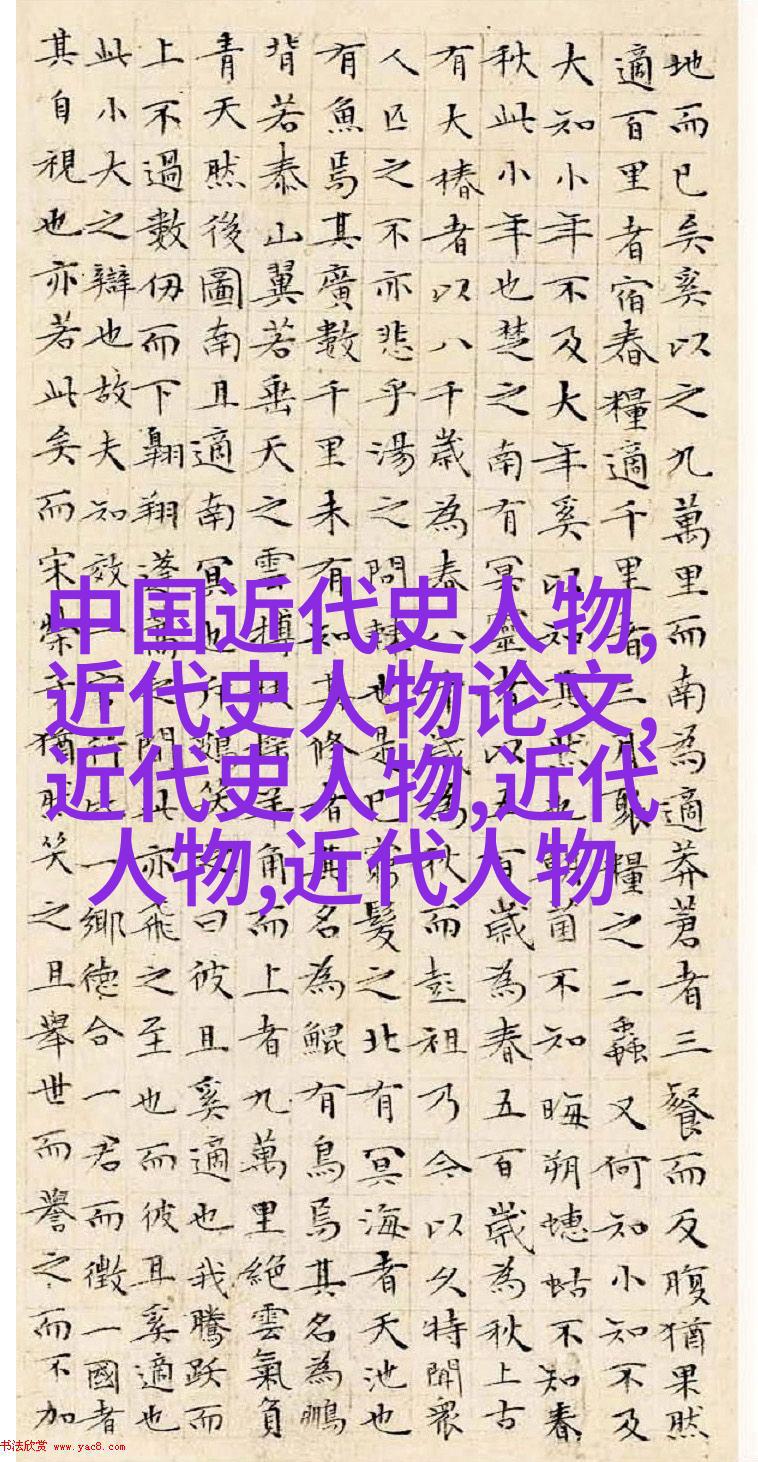 地而已矣奚以之九萬里而南為適莽蒼者三餐而反腹猶果然
適百里者宿舂糧適千里者三月聚糧之二蟲又何知小知不及
大知小年不及大年奚以知其然也朝菌不知晦朔蟪蛄不知春
秋此小年也楚之南有冥靈者以五百歲為春五百歲為秋上古
有大椿者以八千歲為春八千歲為秋而彭祖乃今以久特聞衆
人匹之不亦悲乎湯之問棘也是已窮髮之北有冥海者天池也
有魚焉其廣數千里未有知其修者其名為鯤有鳥焉其名為鵬
背若泰山翼若垂天之雲摶扶搖羊角而上者九萬里絕雲氣負
青天然後圖南且適南冥也斥鴳笑之曰彼且奚適也我騰躍而
上不過數仞而下翱翔蓬蒿之間此亦飛之至也而彼且奚適也
此小大之辯也故夫知效一官行比一鄉德合一君而徵一國者
其自視也亦若此矣而宋榮子猶然笑之且舉世而譽之而不加
中国近代史人物,
近代史人物论文,
近代史人物,近代
人物,近代人物
书法欣赏 www.yac8.com